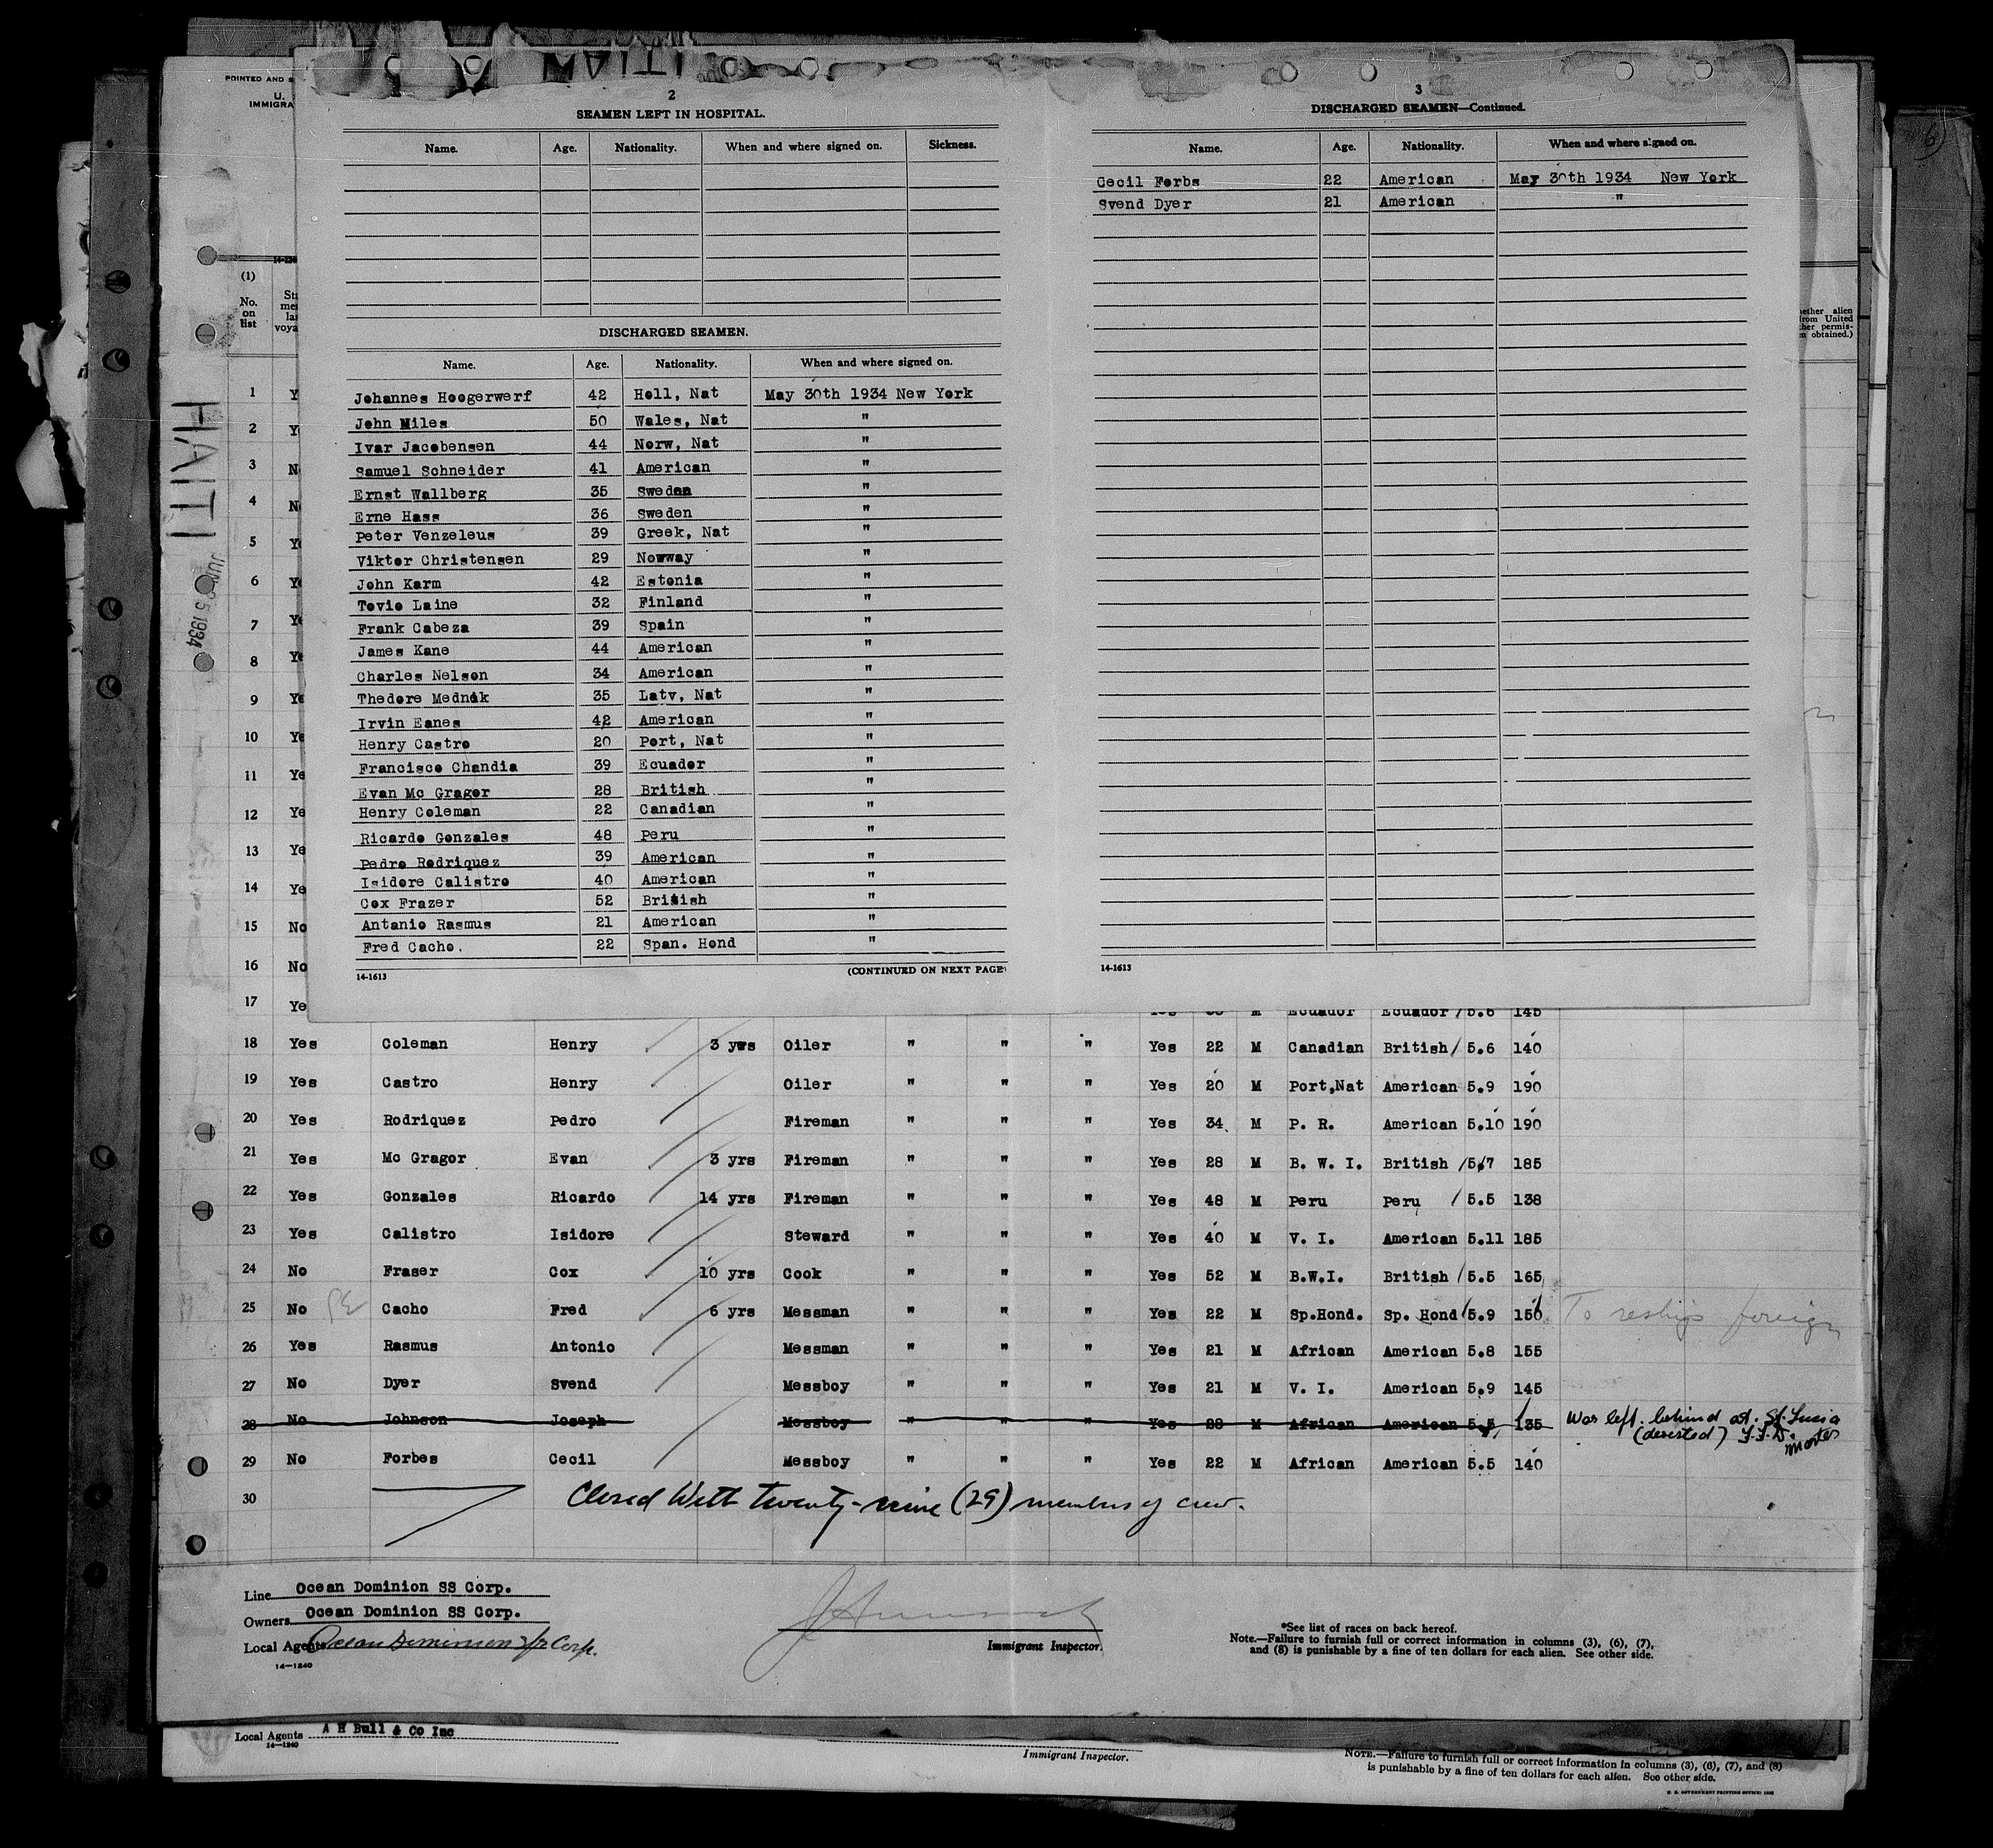 HAITI
PRINTED AND S
U.
IMMIGRA
2
SEAMEN LEFT IN HOSPITAL.
Name. Age. Nationality. When and where signed on. Sickness.
DISCHARGED SEAMEN.
Name. Age. Nationality. When and where signed on.
Johannes Hoogerwerf 42 Holl, Nat May 30th 1934 New York
John Miles 50 Wales, Nat "
Ivar Jacobensen 44 Norw, Nat "
Samuel Schneider 41 American "
Ernst Wallberg 35 Sweden "
Erne Hass 36 Sweden "
Peter Venzeleus 39 Greek, Nat "
Viktor Christensen 29 Nowway "
John Karm 42 Estonia "
Tovio Laine 32 Finland "
Frank Cabeza 39 Spain "
James Kane 44 American "
Charles Nelson 34 American "
Thedore Mednik 35 Latv, Nat "
Irvin Eanes 42 American "
Henry Castro 20 Port, Nat "
Francisco Chandia 39 Ecuador "
Evan Mc Gragor 28 British "
Henry Coleman 22 Canadian "
Ricardo Gonzales 48 Peru "
Pedro Rodriquez 39 American "
Isidore Calistro 40 American "
Cox Frazer 52 British "
Antanio Rasmus 21 American "
Fred Cacho. 22 Span. Hond "
14-1613 (CONTINUED ON NEXT PAGE)
3
DISCHARGED SEAMEN—Continued.
Name. Age. Nationality. When and where signed on.
Cecil Forbs 22 American May 30th 1934 New York
Svend Dyer 21 American "
14-1613
6
(1)
No. on list
Sta
mem
las
voya
ether alien
from United
ther permis-
n obtained.)
HAITI
JUN 5 1934
1 Y
2 Y
3 N
4 No
5 Ye
6 Ye
7 Ye
8 Ye
9 Ye
10 Ye
11 Ye
12 Ye
13 Ye
14 Ye
15 No
16 No
17 Ye M Ecuador Ecuador / 5.6 145
18 Yes Coleman Henry 3 yrs Oiler " " " Yes 22 M Canadian British / 5.6 140
19 Yes Castro Henry Oiler " " " Yes 20 M Port,Nat American 5.9 190
20 Yes Rodriquez Pedro Fireman " " " Yes 34 M P. R. American 5.10 190
21 Yes Mc Gragor Evan 3 yrs Fireman " " " Yes 28 M B. W. I. British / 5.7 185
22 Yes Gonzales Ricardo 14 yrs Fireman " " " Yes 48 M Peru Peru / 5.5 138
23 Yes Calistro Isidore Steward " " " Yes 40 M V. I. American 5.11 185
24 No Fraser Cox 10 yrs Cook " " " Yes 52 M B.W.I. British / 5.5 165
25 No Cacho Fred 6 yrs Messman " " " Yes 22 M Sp.Hond. Sp. Hond / 5.9 150 To reships foreign
26 Yes Rasmus Antonio Messman " " " Yes 21 M African American 5.8 155
27 No Dyer Svend Messboy " " " Yes 21 M V. I. American 5.9 145
28 No Johnson Joseph Messboy " " " Yes 28 M African American 5.5 135 Was left behind at St. Lucia
(deserted) Master
29 No Forbes Cecil Messboy " " " Yes 22 M African American 5.5 140
30 Closed With twenty-nine (29) members of crew.
Line Ocean Dominion SS Corp.
Owners Ocean Dominion SS Corp.
Local Agents Ocean Dominion S/S Corp.
14—1240
Immigrant Inspector.
*See list of races on back hereof.
Note.—Failure to furnish full or correct information in columns (3), (6), (7),
and (8) is punishable by a fine of ten dollars for each alien. See other side.
Local Agents A H Bull & Co Inc
14—1240
Immigrant Inspector.
NOTE.—Failure to furnish full or correct information in columns (3), (6), (7), and (8)
is punishable by a fine of ten dollars for each alien. See other side.
U. S. GOVERNMENT PRINTING OFFICE: